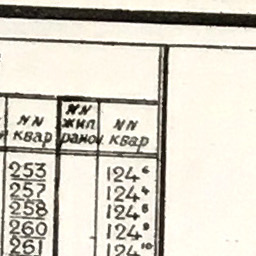 NN квар NN жил. район. NN квар
253 124⁶
257 124⁴
258 124⁸
260 124⁹
261 124¹⁰